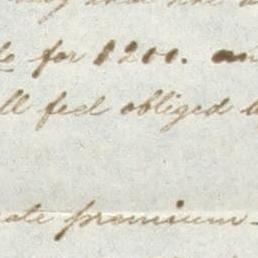 for $200. an
ll feel obliged
ate premium-